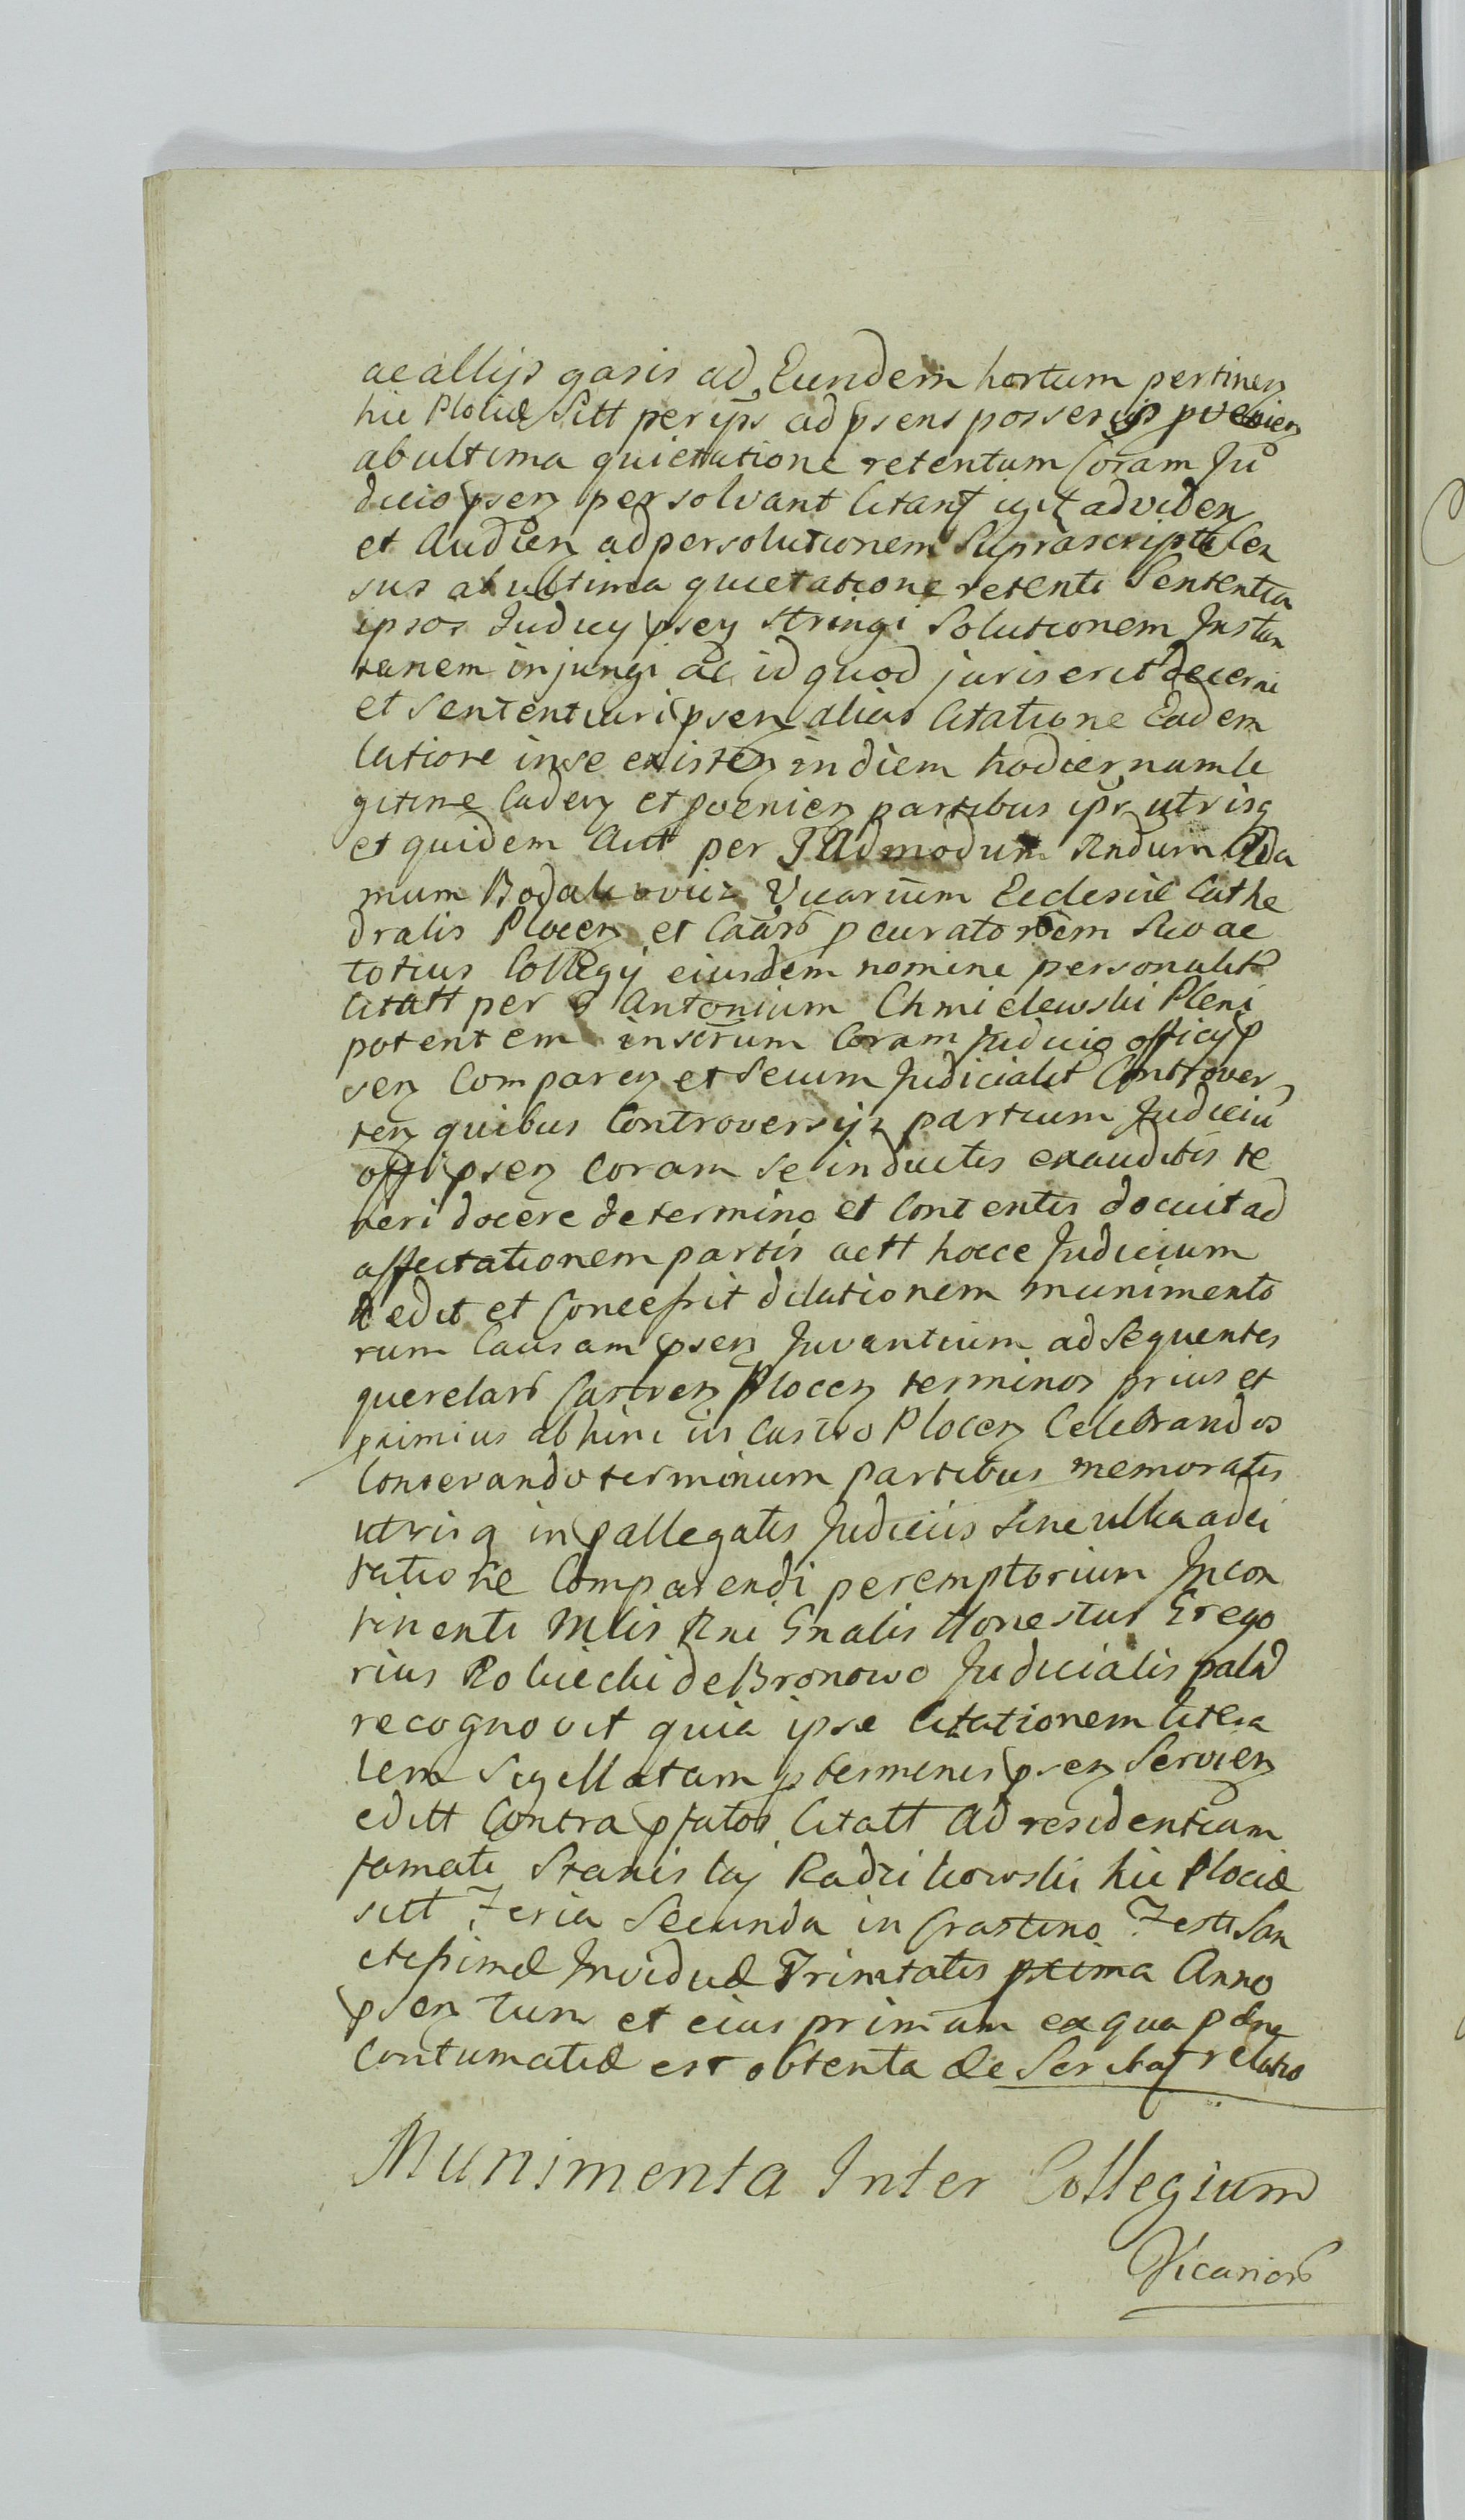 ac allijs gasis ad Eundem hortum pertinen
hic Plociæ Sitt per ips ad psens posseris pvenien
ab ultima quiettatione retentum Coram Ju
dicio psen persolvant Citant igit ad viden
et Audien ad persolutionem Suprascripti Cen
sus ab ultima quietatione retenti Sententia
ipsos Judicy psen Stringi Solutionem Instan
taneam injungi ac id quod juris erit decerni
et Sententiari psen alias Citatione Eadem
latiore in se existen in diem hodiernum le
gitime Caden et pvenien partibus ipsr utrisq
et quidem Autt per Admodum Rndum Ada
mum Bodakowicz Vicarium Ecclesiæ Cathe
dralis Plocen et Causr pcuratorem Suo ac
totius Collegij eiusdem nomine personalitr
Citatt per G Antonium Chmielewski Pleni
potentem inscrum Coram Judicio officij p
sen Comparen et Secum Judicialitr Controver
ten quibus Controversijs partium Judiciu
offi psen Coram Se inductis exauditis te
neri docere de termino et Contentis docuit ad
affectationem partis actt hocce Judicium
dedit et Concessit dilationem munimento
rum Causam psen Juvantium ad Sequentes
querelars Castren Plocen terminos prius et
primius ab hinc in Castro Plocen Celebrandos
Conservando terminum partibus memoratis
utrisq in pallegatis Judiciis Sine ulla adci
tatione Comparendi peremptorium Incon
tinenti Mlis Rni Gnalis Honestus Grego
rius Rokicki de Bronowo Judicialis palm
recognovit quia ipse Citationem litera
lem Sigillatam p terminis psen Servien
editt Contra pfatos Citatt Ad residentiam
famati Stanislaj Radzikowski hic Plociæ
sitt Feria Secunda in Crastino Festi San
ctissimæ Individuæ Trinitatis pxima Anno
psen Tum et eius primum ex qua pdna
Contumatiæ est obtenta de Ser Citat relatio
Munimenta Inter Collegium
Vicariors